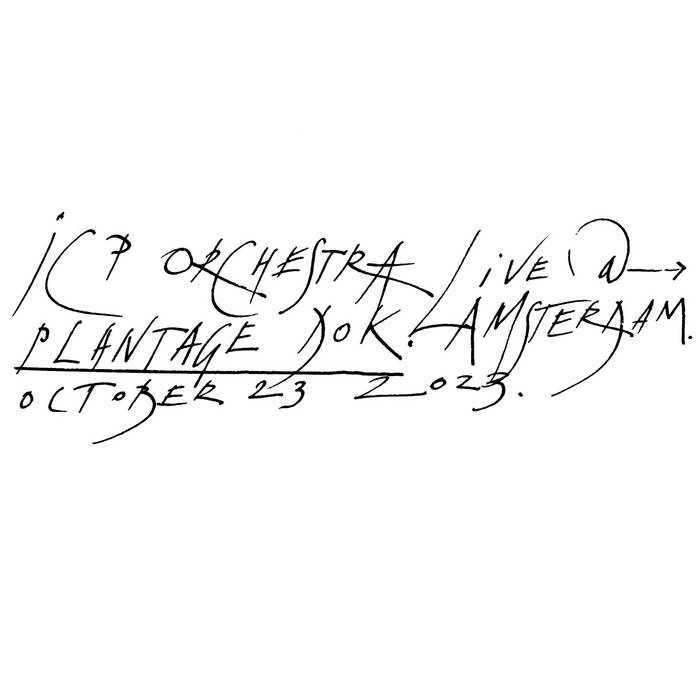 iCP ORCHESTRA LiVE @→
PLANTAGE DOK. AMSTERDAM.
OCTOBER 23 2023.